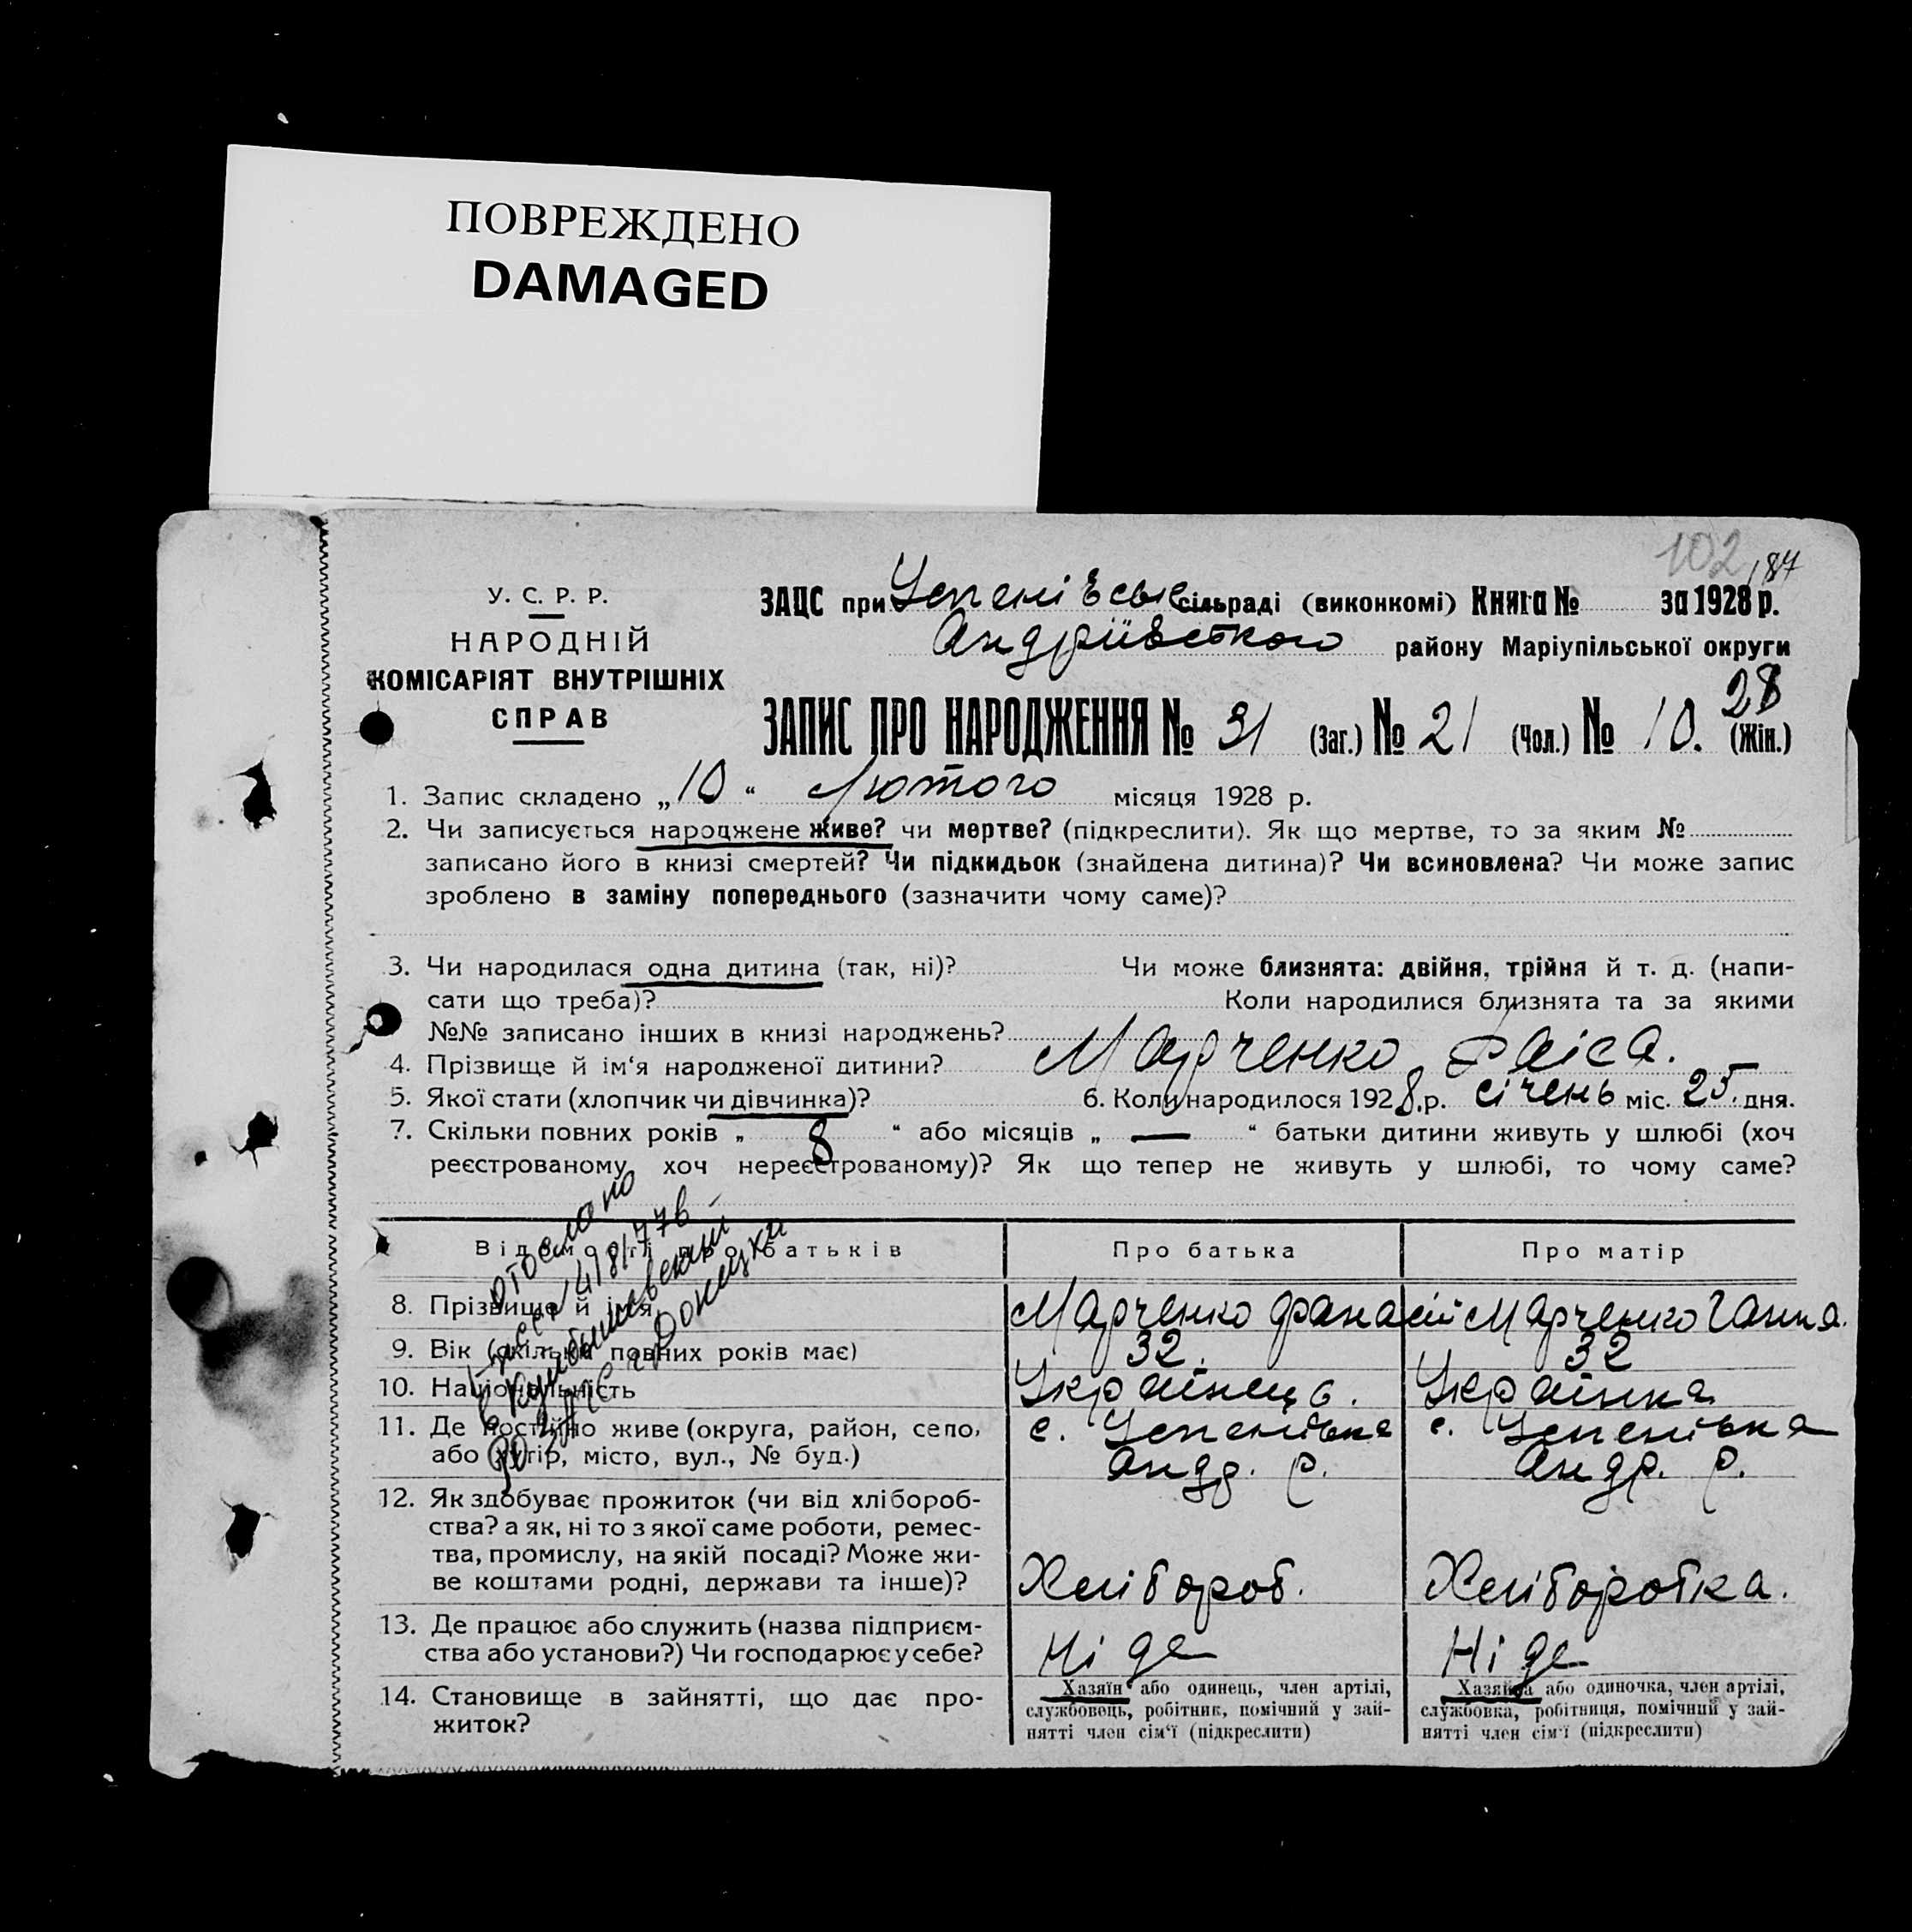 ПОВРЕЖДЕНО
DAMAGED
102 187
У. С. Р. Р.
НАРОДНІЙ
КОМІСАРІЯТ ВНУТРІШНІХ
СПРАВ
ЗАЦС при Успенівськ сільраді (виконкомі) Книга № за 1928 р.
Андріївського району Маріупільської округи
28
ЗАПИС ПРО НАРОДЖЕННЯ № 31 (Заг.) № 21 (Чол.) № 10. (Жін.)
1. Запис складено „10“ Лютого місяця 1928 р.
2. Чи записується нароџжене живе? чи мертве? (підкреслити). Як що мертве, то за яким №
записано його в книзі смертей? Чи підкидьок (знайдена дитина)? Чи всиновлена? Чи може запис
зроблено в заміну попереднього (зазначити чому саме)?
3. Чи народилася одна дитина (так, ні)? Чи може близнята: двійня, трійня й т. д. (напи-
сати що треба)? Коли народилися близнята та за якими
№№ записано інших в книзі народжень?
4. Прізвище й ім‘я народженої дитини? Марченко Раіса.
5. Якої стати (хлопчик чи дівчинка)? 6. Коли народилося 1928.р. січень міс. 25. дня.
7. Скільки повних років „ 8 “ або місяців „ — “ батьки дитини живуть у шлюбі (хоч
реєстрованому, хоч нереєстрованому)? Як що тепер не живуть у шлюбі, то чому саме?
отослано
4/8/177в
в Куйбышевский
г Донецка
Відомості про батьків Про батька Про матір
8. Прізвище й ім‘я Марченко Фанасій Марченко Ганна.
9. Вік (скільки повних років має) 32. 32
10. Національність Українець. Українка
11. Де постійно живе (округа, район, село, с. Успенівка с. Успенівка
або хутір, місто, вул., № буд.) Андр. р. Андр. р.
12. Як здобуває прожиток (чи від хлібороб-
ства? а як, ні то з якої саме роботи, ремес-
тва, промислу, на якій посаді? Може жи-
ве коштами родні, держави та інше)? Хлібороб. Хліборобка.
13. Де працює або служить (назва підприєм-
ства або установи?) Чи господарює у себе? Ні де Ні де
14. Становище в зайнятті, що дає про-
житок?
Хазяїн або одинець, член артілі,
службовець, робітник, помічний у зай-
нятті член сім‘ї (підкреслити)
Хазяйка або одиночка, член артілі,
службовка, робітниця, помічний у зай-
нятті член сім‘ї (підкреслити)